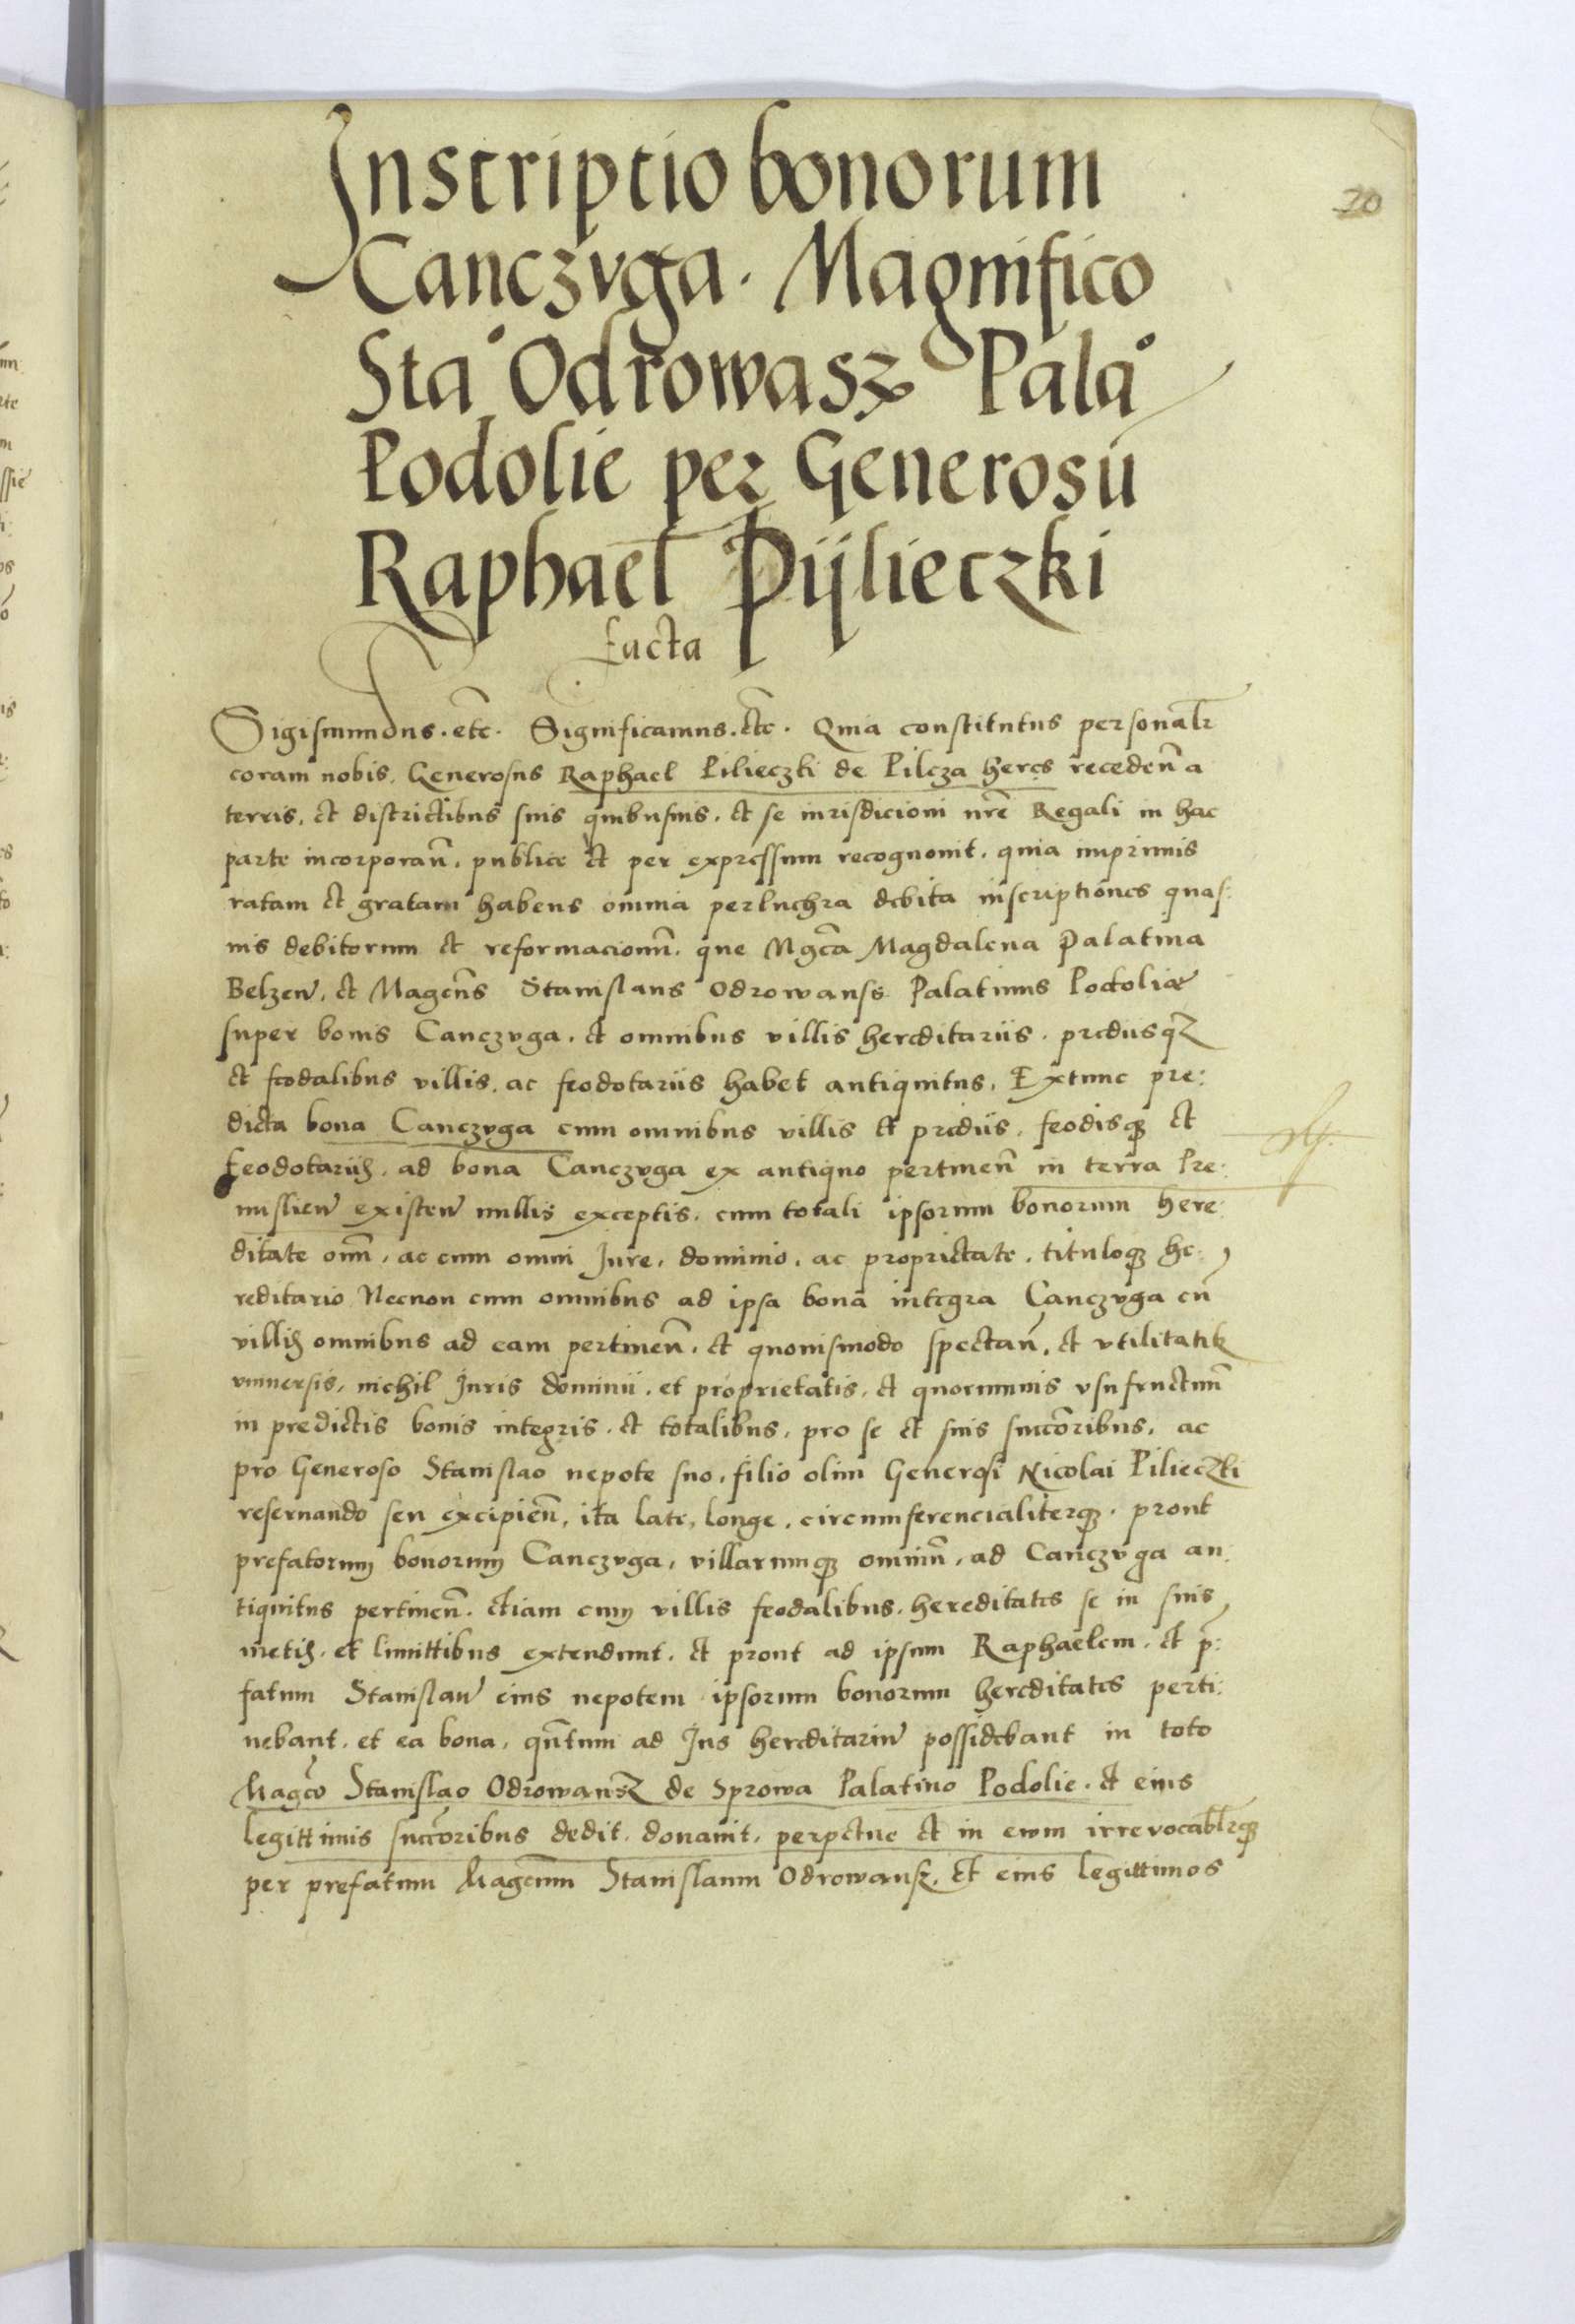 20
Inscriptio bonorum
Canczvga. Magnifico
Sta° Odrowasz Pala°
Podolie per Generosū
Raphael Pijlieczki
facta
Sigismundus. etc̄. Significamus. etc̄. Quia constitutus personalr̄
coram nobis. Generosus Raphael Pilieczki de Pilcza heres recedēn a
terris, et districtibus suis quibusuis. et se iurisdicioni nrē Regali in hac
parte incorporan̄. publice et per expressum recognouit. quia imprimis
ratam et gratam habens omnia perluchra debita inscriptiones quas:
uis debitorum et reformacionum̄. que Mgcā Magdalena Palatina
Belzen̄. et Magcūs Stanislaus Odrowansz Palatinus Podolie
super bonis Canczvga. et omnibus villis hereditariis. prediisqz
et feodalibus villis. ac feodotariis habet antiquitus. Extunc pre:
dicta bona Canczvga cum omnibus villis et prediis. feodisqz et
feodotariis. ad bona Canczvga ex antiquo pertinen̄ in terra Pre:
mislien̄ existen̄ nullis exceptis. cum totali ipsorum bonorum here:
ditate om̄i. ac cum omni Jure. dominio. ac proprietate. tituloqz he:
reditario Necnon cum omnibus ad ipsa bona integra Canczvga cū
villis omnibus ad eam pertinen̄. et quouismodo spectan̄. et vtilitatib
vniuersis. nichil Juris dominii. et proprietatis. et quorumuis vsufructuum̄
in predictis bonis integris. et totalibus. pro se et suis succōribus. ac
pro Generoso Stanislao nepote suo. filio olim Generosi Nicolai Pilieczki
reseruando seu excipien̄. ita late, longe. circumferencialiterqz. prout
prefatorum bonorum Canczvga, villarumqz omnium̄. ad Canczvga an:
tiquitus pertinen̄. etiam cum villis feodalibus. hereditates se in suis
metis. et limittibus extendunt. et prout ad ipsum Raphaelem. et p̄:
fatum Stanislaū eius nepotem ipsorum bonorum hereditates perti:
nebant. et ea bona. quātum ad Jus hereditariū possidebant in toto
Magcō Stanislao Odrowansz de Sprowa Palatino Podolie. et eius
legittimis succōribus dedit. donauit. perpetue et in ewm irreuocablr̄qz
per prefatum Magcūm Stanislaum Odrowansz. et eius legittimos